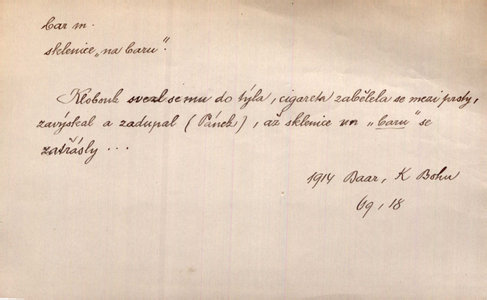 Car m.
sklenice „na baru“.
Klobouk svezl se mu do týla, cigareta zabělela se mezi prsty,
zavýskal a zadupal (Pánek), až sklenice na „baru“ se
zatřásly ...
1914 Baar, K Bohu
69, 18